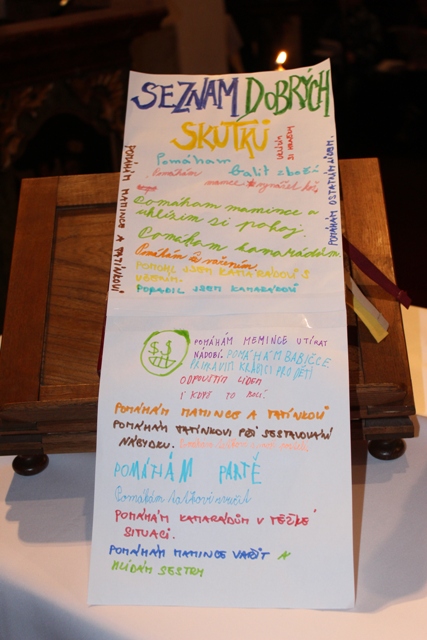 SEZNAM DOBRÝCH
SKUTKŮ
Pomáhám balit zboží
Pomáhám
mamce vynášet koš
POMÁHÁM MAMINCE A TATÍNKOVI
POMÁHÁM OSTATNÍM LIDEM.
Pomáham mamince a
uklízim si pokoj.
Pomáham kamarádům.
Pomáhám s vařením
POMOHL JSEM KAMARÁDOVI S
UČENÍM.
PORADIL JSEM KAMARÁDOVI
$ $
POMÁHÁM MEMINCE UTÍRAT
NÁDOBÍ. POMÁHÁM BABIČCE
PŘIPRAVIT KRABICI PRO DĚTI
ODPOUŠTÍM LIDEM
I KDYŽ TO BOLÍ.
POMÁHÁM MAMINCE A TATÍNKOVI
POMAHÁM TATÍNKOVI PŘI SESTAVOVÁNÍ
NÁBYTKU.
POMÁHÁM PARTĚ
Pomáhám
POMÁHÁM KAMARÁDŮM V TĚŽKÉ
SITUACI.
POMÁHÁM MAMINCE VAŘIT A
HLÍDÁM SESTRY